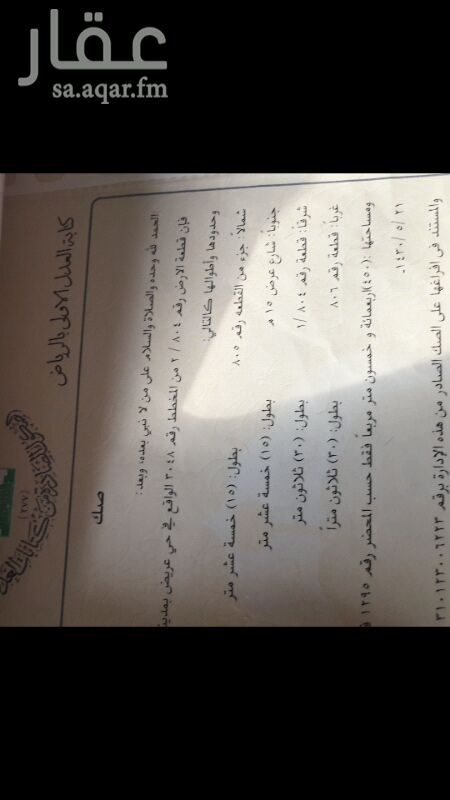 عقار
sa.aqar.fm
كتابة العدل الأولى بالرياض
(٢٧٧)
صك
الحمد لله وحده والصلاة والسلام على من لا نبي بعده، وبعد:
فإن قطعة الأرض رقم ٨٠٤ / ٢ من المخطط رقم ٣٠٤٨ الواقع في حي عريض بمدينة
وحدودها وأطوالها كالتالي:
شمالاً: جزء من القطعه رقم ٨٠٥ بطول: (١٥) خمسة عشر متر
جنوباً: شارع عرض ١٥ م بطول: (١٥) خمسة عشر متر
شرقاً: قطعة رقم ٨٠٤ /١ بطول: (٣٠) ثلاثون متر
غرباً: قطعة رقم ٨٠٦ بطول: (٣٠) ثلاثون متراً
ومساحتها :(٤٥٠) اربعمائة و خمسون متر مربعاً فقط حسب المحضر رقم ١٢٩٥
والمستند في افراغها على الصك الصادر من هذه الإدارة برقم ٣١٠١٢٣٠٠٦٢٢٣
٢١ /٥ /١٤٣٠